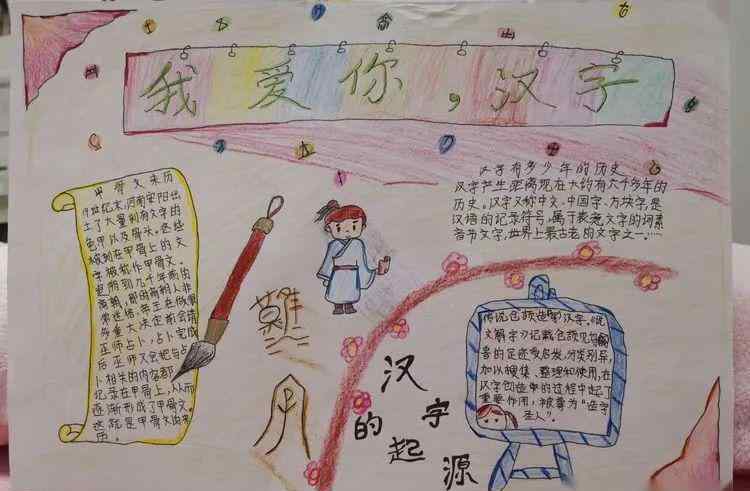 我爱你，汉字
甲骨文来历
19世纪末，河南安阳出
土了大量刻有文字的
龟甲以及骨头。这些
被刻在甲骨上的文
字被称作甲骨文。
更朔到几千年前的
商朝，那时的人非
常迷信，帝王在做
多重大决定前会请
巫师占卜，占卜完成
后巫师又会把与占
卜相关的内容都
记录在甲骨上，从而
逐渐形成了甲骨文。
这就是甲骨文由来
历。
汉字有多少年的历史
汉字产生距离现在大约有六千多年的
历史。汉字又称中文、中国字、方块字，是
汉语的记录符号，属于表意文字的词素
音节文字，世界上最古老的文字之一……
難
汉字
的起源
传说仓颉造的汉字，《说
文解字》记载仓颉见鸟
兽的足迹受启发，分类别异，
加以搜集、整理和使用，在
汉字创造的过程中起了
重要作用，被尊为“造字
圣人”。